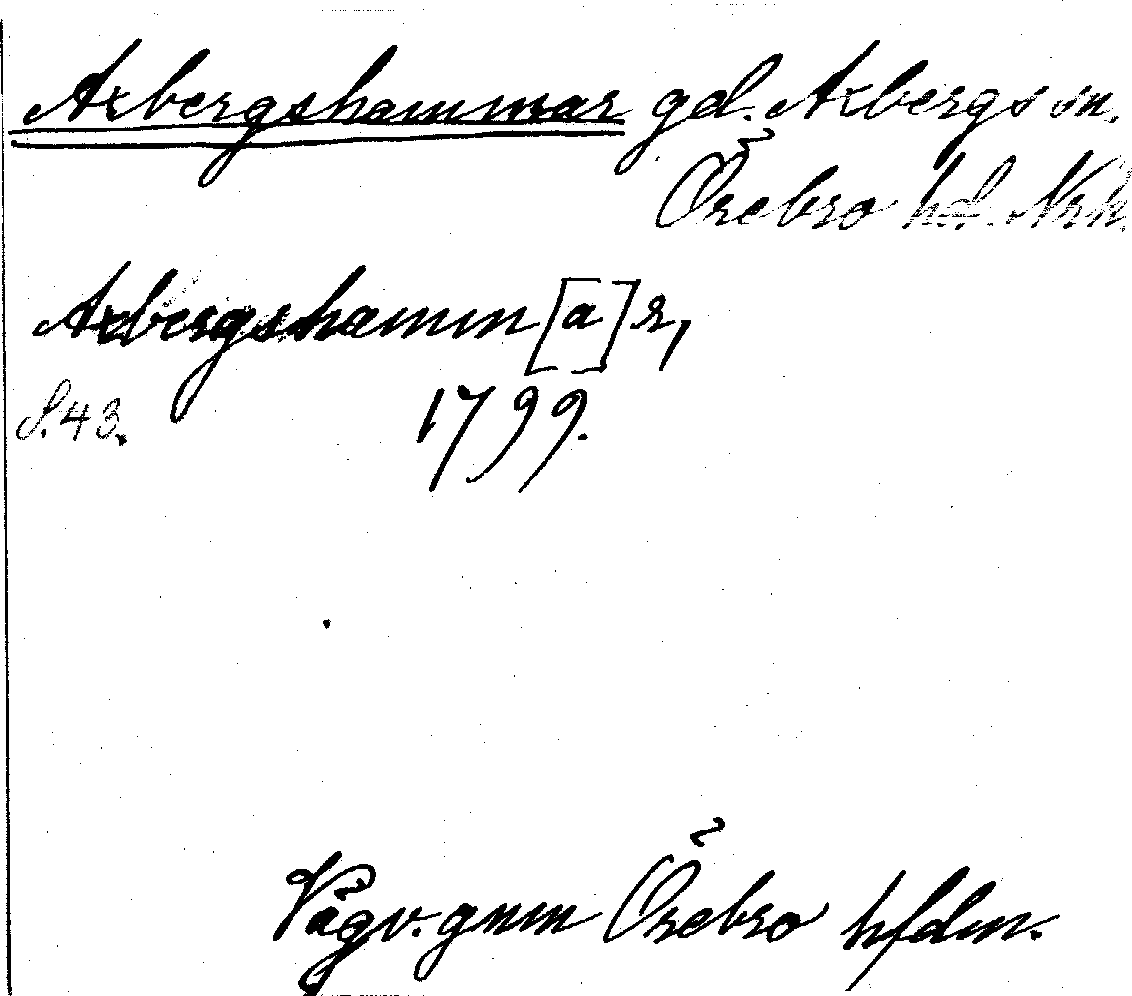 Axbergshammar gd. Axbergs sn.
Örebro hd. Nrk.
Axbergshamm[a]r,
S. 43. 1799.
Vägv. gnm Örebro hfdm.